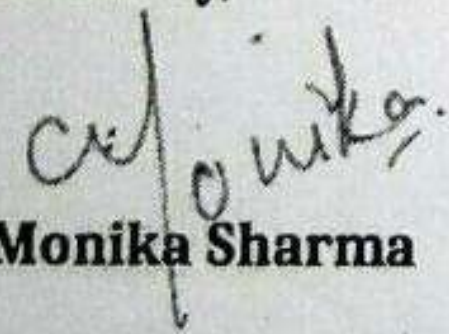 Monika.
Monika Sharma